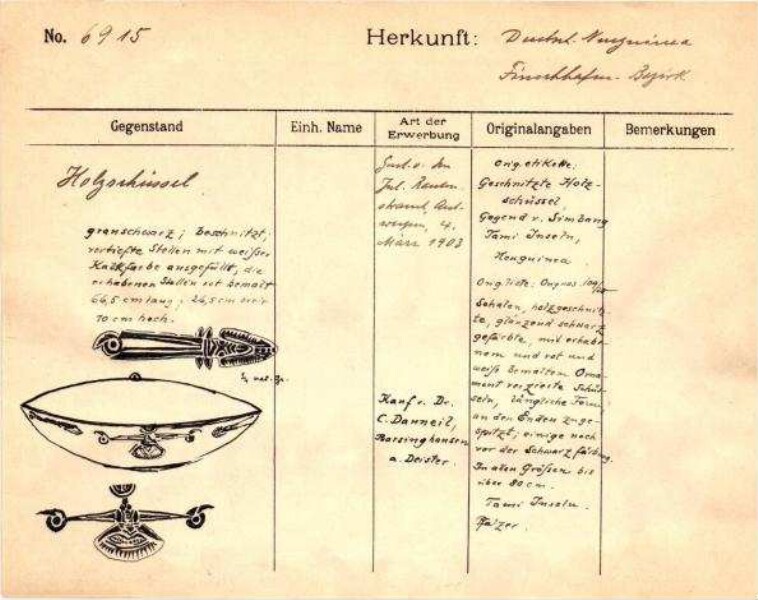 No. 6915
Herkunft: Deutsch. Neuguinea
Finschhafen-Bezirk
Gegenstand
Einh. Name
Art der Erwerbung
Originalangaben
Bemerkungen
Holzschüssel
grauschwarz; beschnitzt;
vertiefte Stellen mit weisser
Kalkfarbe ausgefüllt, die
erhabenen Stellen rot bemalt
66,5 cm lang; 26,5 cm breit
10 cm hoch.
nat. Gr.
März 1903
Kauf v. Dr.
C. Danneil,
Barsinghausen
a. Deister.
Orig. etikette:
Geschnitzte Holz-
schüssel,
Gegend v. Simbang
Tami Inseln,
Neuguinea
Orig liste:
Schalen, holzgeschnitz-
te, glänzend schwarz
gefärbte, mit erhabe-
nem und rot und
weiß bemaltem Orna-
ment verzierte Schüs-
seln, längliche Form
an den Enden zuge-
spitzt; einige noch
vor der Schwarzfärbung.
In allen Größen bis
über 80 cm.
Tami Inseln.